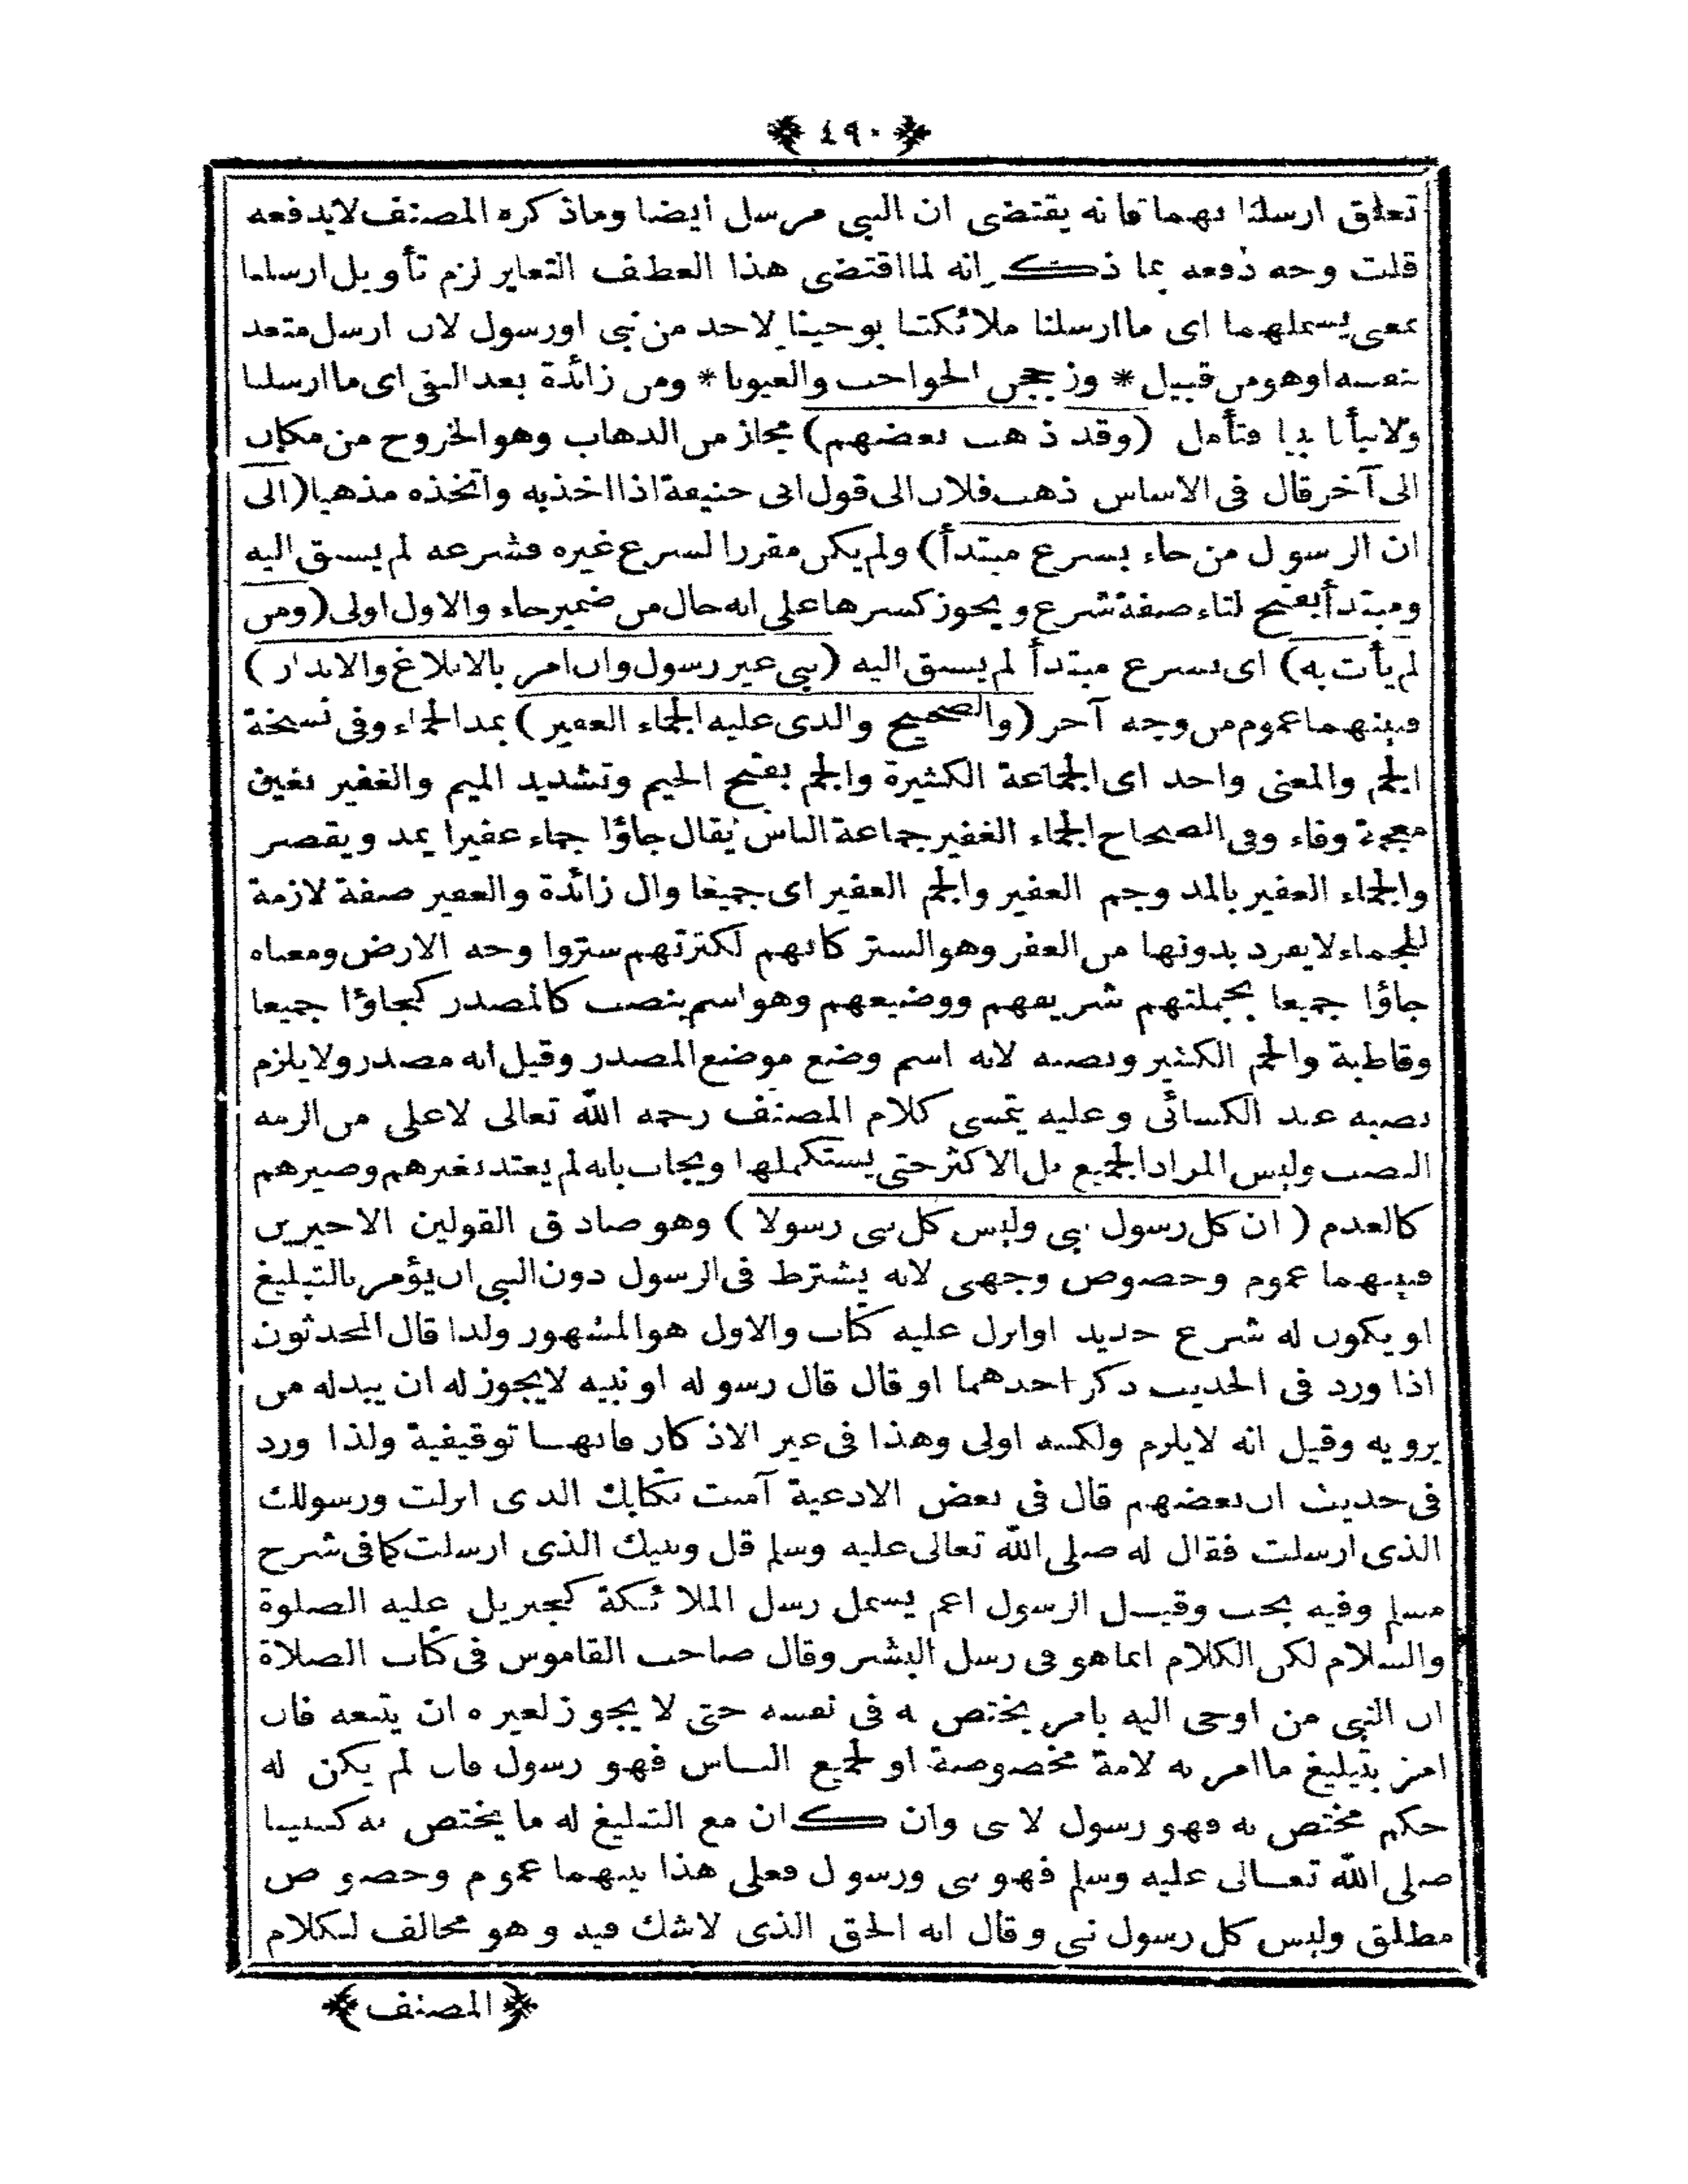 ٤٩٠
تعلق ارسلنا بهما فانه يقتضى ان النبى مرسل ايضا وماذكره المصنف لايدفعه
قلت وجه دفعه بما ذكر انه لما اقتضى هذا العطف التغاير لزم تأويل ارسلنا
بمعنى يشملهما اى ما ارسلنا ملائكتنا بوحينا لاحد من نبى اورسول لان ارسل متعد
بنفسه اوهو من قبيل * وزججن الحواجب والعيونا * ومن زائدة بعد النفى اى ما ارسلنا
ولانبأنا نبيا فتأمل (وقد ذهب بعضهم) مجاز من الذهاب وهو الخروج من مكان
الى آخر قال فى الاساس ذهب فلان الى قول ابى حنيفة اذا اخذ به واتخذه مذهبا (الى
ان الرسول من جاء بشرع مبتدأ) ولم يكن مقررا لشرع غيره فشرعه لم يسبق اليه
ومبتدأ بفتح لتاء صفة شرع ويجوز كسرها على انه حال من ضمير جاء والاول اولى (ومن
لم يأت به) اى بشرع مبتدأ لم يسبق اليه (نبى غير رسول وان امر بالابلاغ والانذار)
فبينهما عموم من وجه آخر (والصحيح والذى عليه الجماء الغفير) بمد الجماء وفى نسخة
الجم والمعنى واحد اى الجماعة الكثيرة والجم بفتح الجيم وتشديد الميم والغفير بغين
معجمة وفاء وفى الصحاح الجماء الغفير جماعة الناس يقال جاؤا جماء غفيرا يمد ويقصر
والجماء الغفير بالمد وجم الغفير والجم الغفير اى جميعا وال زائدة والغفير صفة لازمة
للجماء لايفرد بدونها من الغفر وهو الستر كانهم لكثرتهم ستروا وجه الارض ومعناه
جاؤا جميعا بجملتهم شريفهم ووضيعهم وهو اسم ينصب كالمصدر كجاؤا جميعا
وقاطبة والجم الكثير ونصبه لانه اسم وضع موضع المصدر وقيل انه مصدر ولايلزم
نصبه عند الكسائى وعليه يتمشى كلام المصنف رحمه الله تعالى لاعلى من الزمه
النصب وليس المراد الجميع بل الاكثر حتى يستكملها ويجاب بانه لم يعتد بغيرهم وصيرهم
كالعدم (ان كل رسول نبى وليس كل نبى رسولا) وهو صادق القولين الاخيرين
فبينهما عموم وخصوص وجهى لانه يشترط فى الرسول دون النبى ان يؤمر بالتبليغ
او يكون له شرع جديد او انزل عليه كتاب والاول هو المشهور ولذا قال المحدثون
اذا ورد فى الحديث ذكر احدهما او قال قال رسوله او نبيه لايجوز له ان يبدله من
يرويه وقيل انه لايلزم ولكنه اولى وهذا فى غير الاذكار فانها توقيفية ولذا ورد
فى حديث ان بعضهم قال فى بعض الادعية آمنت بكتابك الذى انزلت ورسولك
الذى ارسلت فقال له صلى الله تعالى عليه وسلم قل ونبيك الذى ارسلت كما فى شرح
مسلم وفيه بحث وقيل الرسول اعم يشمل رسل الملائكة كجبريل عليه الصلوة
والسلام لكن الكلام انما هو فى رسل البشر وقال صاحب القاموس فى كتاب الصلاة
ان النبى من اوحى اليه بامر يختص به فى نفسه حتى لا يجوز لغيره ان يتبعه فان
امر بتبليغ ما امر به لامة مخصوصة او لجميع الناس فهو رسول فان لم يكن له
حكم مختص به فهو رسول لا نبى وان كان مع التبليغ له ما يختص به كنبينا
صلى الله تعالى عليه وسلم فهو نبى ورسول فعلى هذا بينهما عموم وخصوص
مطلق وليس كل رسول نبى وقال انه الحق الذى لاشك فيه وهو مخالف لكلام
(المصنف)